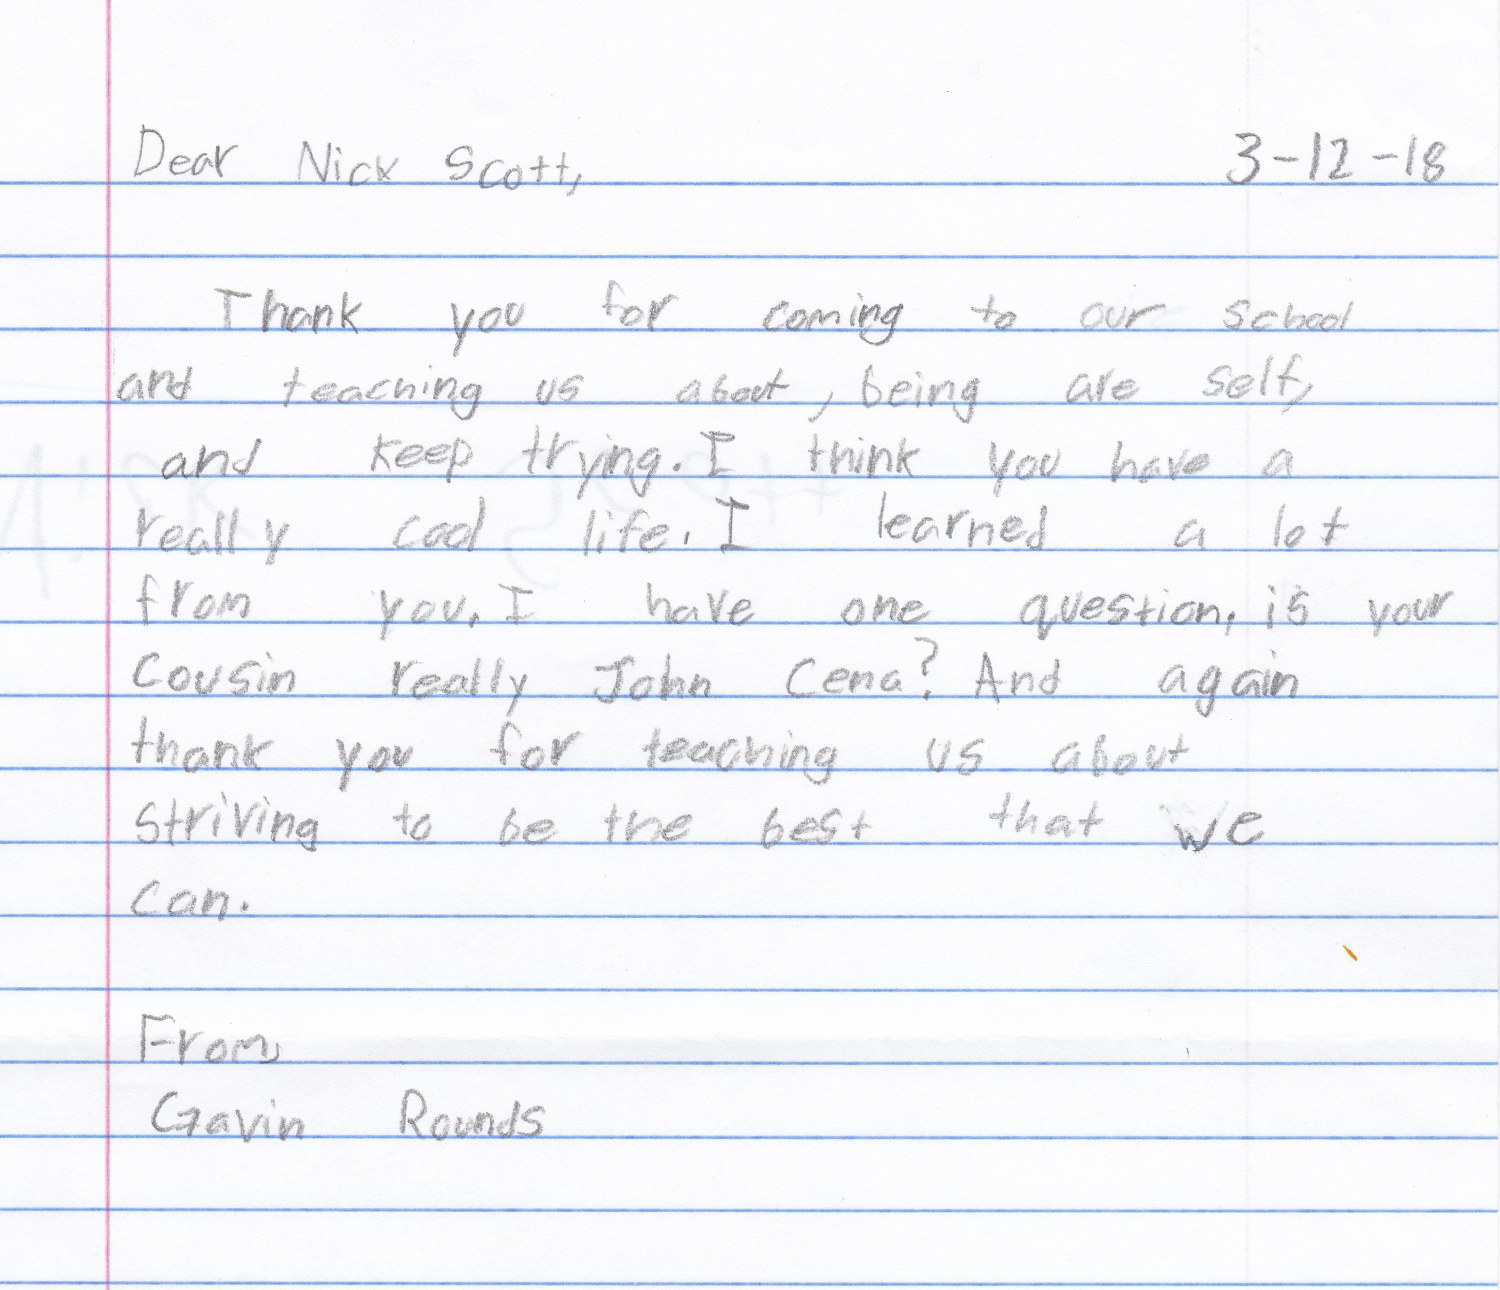 Dear Nick Scott, 3-12-18
Thank you for coming to our school
and teaching us about, being are self,
and keep trying. I think you have a
really cool life. I learned a lot
from you. I have one question, is your
cousin really John Cena? And again
thank you for teaching us about
striving to be the best that we
can.
From,
Gavin Rounds